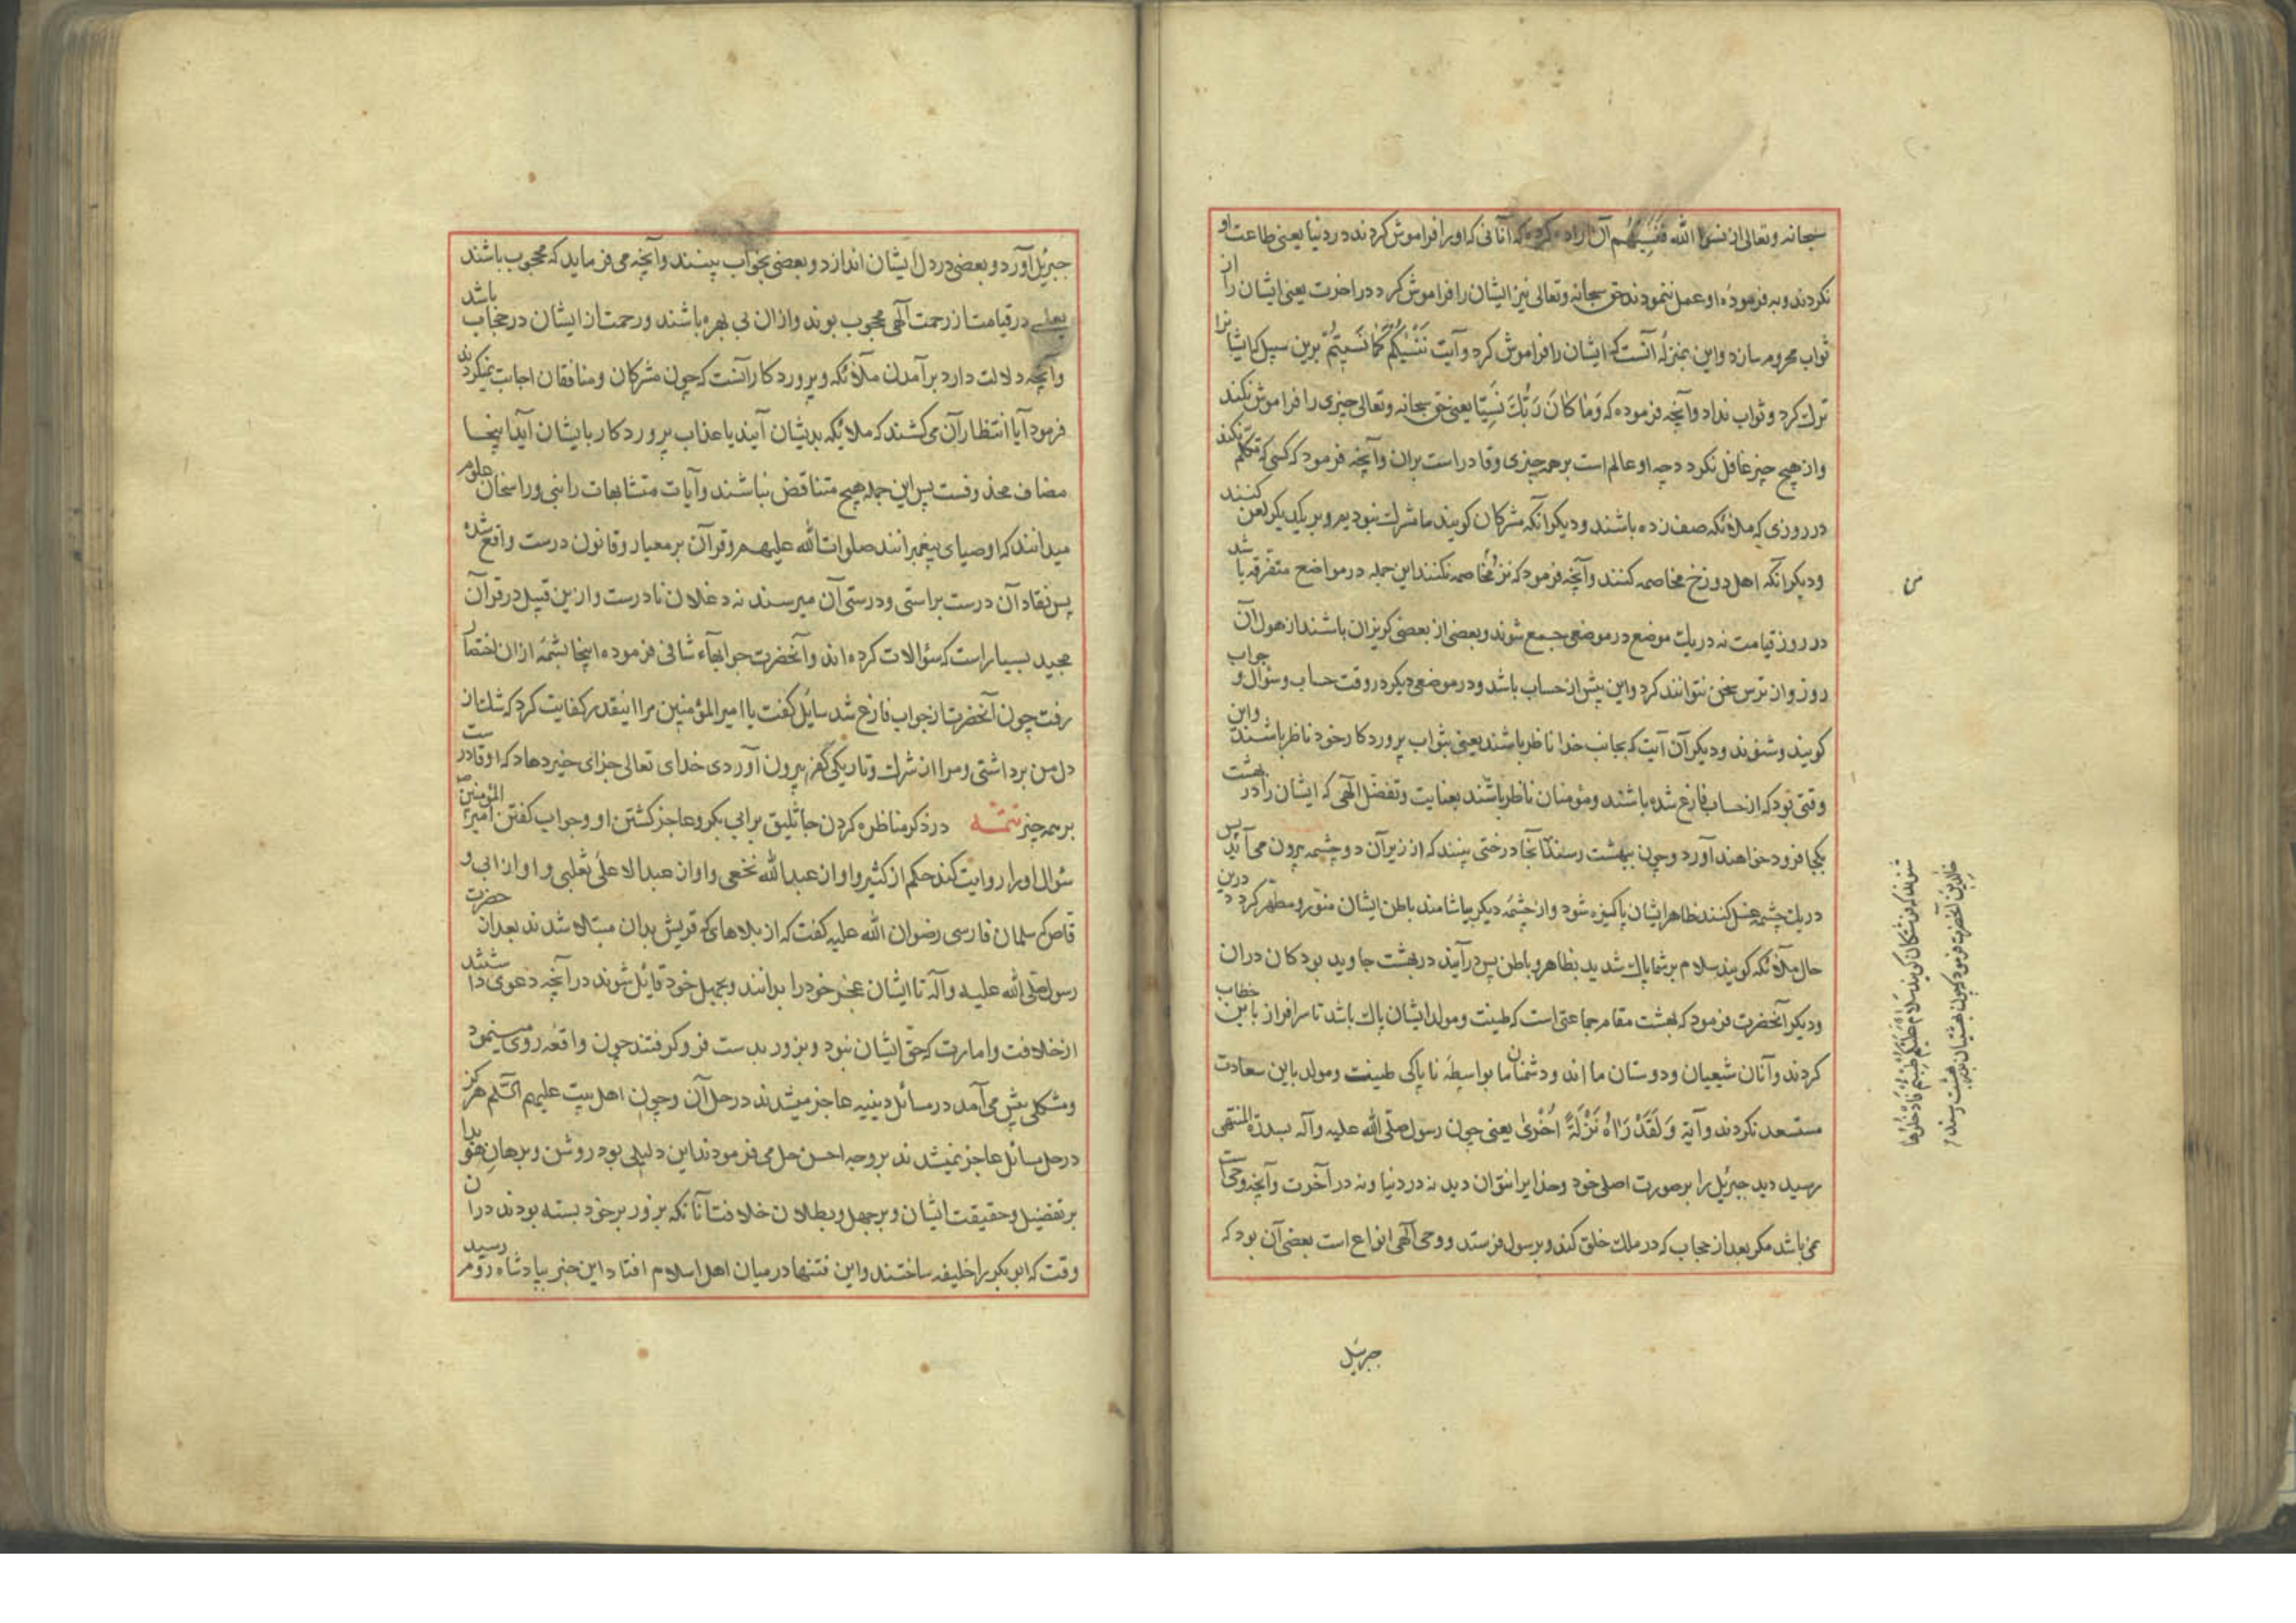 سبحانه وتعالی از نسوا الله فنسیهم آن اراده کرده که آنانی که او را فراموش کردند در دنیا یعنی طاعت او
نکردند و به فرمودهٔ او عمل ننمودند حق سبحانه وتعالی نیز ایشان را فراموش کرد در اخرت یعنی ایشان را از
ثواب محروم سازد واین بمنزلهٔ آنست که ایشان را فراموش کرد و آیت نَنْسٰیکُمْ کَمٰا نَسیتُمْ برین سبیل که ایشانرا
ترک کرد و ثواب نداد وآنچه فرموده که وَمٰا کٰانَ رَبُّکَ نَسِیّاً یعنی حق سبحانه وتعالی چیزی را فراموش نکند
واز هیچ چیز غافل نکردد چه او عالم است برهمه چیزی وقادر است بران وآنچه فرمود که کسی که تکلم نکند
در روزی که ملائکه صف زده باشند ودیکر آنکه مشرکان کویند ما مشرک نبودیم و بر یکدیکر لعن کنند
ودیکر آنکه اهل دوزخ مخاصمه کنند وآنچه فرمود که نزد من مخاصمه نکنند این جمله در مواضع متفرقه باشد
در روز قیامت نه در یک موضع در موضعی جمع شوند وبعضی از بعضی کریزان باشند از هول آن
روز واز ترس سخن نتوانند کرد واین پیش از حساب باشد ودر موضعی دیکر در وقت حساب وسؤال و جواب
کویند وشنوند ودیکر آن آیت که بجانب خدا ناظر باشند یعنی بثواب پروردکار خود ناظر باشند واین
وقتی بود که از حساب فارغ شده باشند ومؤمنان ناظر باشند بعنایت وتفضل الهی که ایشان را در بهشت
یکجا فرود خواهند آورد وچون ببهشت رسند آنجا درختی بینند که از زیر آن دو چشمه بیرون می آید پس
در یک چشمه غسل کنند ظاهر ایشان پاکیزه شود واز چشمهٔ دیکر بیاشامند باطن ایشان منور ومطهر کردد درین
حال ملائکه کویند سلام بر شما پاک شدید بظاهر وباطن پس درآیید در بهشت جاوید بودکان دران
ودیکر آنحضرت فرمود که بهشت مقام جماعتی است که طینت ومولد ایشان پاک باشد تا سرافراز باین خطاب
کردند وآنان شیعیان ودوستان ما اند ودشمنان ما بواسطهٔ ناپاکی طینت ومولد باین سعادت
مستسعد نکردند وآیهٔ وَلَقَدْ رَاٰهُ نَزْلَةً اُخْریٰ یعنی چون رسول صلّی الله علیه وآله بسدرة المنتهی
رسید دید جبرئیل را بر صورت اصلی خود وخدایرا نتوان دید نه در دنیا ونه در آخرت وآنچه وحی است
نمی باشد مکر بعد از حجاب که در ملک خلق کند وبرسول فرستد ووحی الهی انواع است بعضی آن بود که
جبرئیل
جبرئیل آورد وبعضی در دل ایشان اندازد وبعضی بخواب بینند وآنچه می فرماید که محجوب باشند
یعنی در قیامت از رحمت آلهی محجوب بوند وازان بی بهره باشند ورحمت از ایشان در حجاب باشد
وآنچه دلالت دارد بر آمدن ملائکه وپروردکار آنست که چون مشرکان ومنافقان اجابت نمیکردند
فرمود آیا انتظار آن می کشند که ملائکه بدیشان آیند یا عذاب پروردکار بایشان آید اینجا
مضاف محذوفست پس این جمله هیچ متناقض نباشند وآیات متشابهات را نبی وراسخان علوم
میدانند که اوصیای پیغمبرانند صلوات الله علیهم وقرآن بر معیار وقانون درست واقع شده
پس نقاد آن درست براستی ودرستی آن میرسند نه دغلان نادرست وازین قبیل در قرآن
مجید بسیار است که سؤالات کرده اند وآنحضرت جوابهاء شافی فرموده اینجا بشمّهٔ ازان اختصار
رفت چون آنحضرت از جواب فارغ شد سایل کفت یا امیر المؤمنین مرا اینقدر کفایت کرد که شک از
دل من برداشتی ومرا از شرک وتاریکی کفر بیرون آوردی خدای تعالی جزای خیر دهاد که او قادرست
بر همه چیز تتمّه در ذکر مناظره کردن جاثلیق بر ابی بکر وعاجز کشتن او وجواب کفتن امیر المؤمنین
سؤال او را روایت کند حکم از کثیر واو از عبدالله نخعی واو از عبد الاعلی ثعلبی واو از ابی و
قاص که سلمان فارسی رضوان الله علیه کفت که از بلاهای که قریش بدان مبتلا شدند بعد از حضرت
رسول صلّی الله علیه وآله تا ایشان عجز خود را بدانند وبجهل خود قایل شوند در آنچه دعوی داشتند
از خلافت وامارت که حق ایشان نبود وبزور بدست فرو کرفتند چون واقعه روی مینمود
ومشکلی پیش می آمد در مسائل دینیه عاجز میشدند در حل آن وچون اهل بیت علیهم السّلم هرکز
در حل مسائل عاجز نمیشدند بر وجه احسن حل می فرمودند این دلیلی بود روشن وبرهان هویدا
بر تفضیل وحقیقت ایشان وبر جهل وبطلان خلافت آنانکه بزور بر خود بسته بودند دران
وقت که ابو بکر را خلیفه ساختند واین فتنها در میان اهل اسلام افتاد این خبر بپادشاه روم رسید